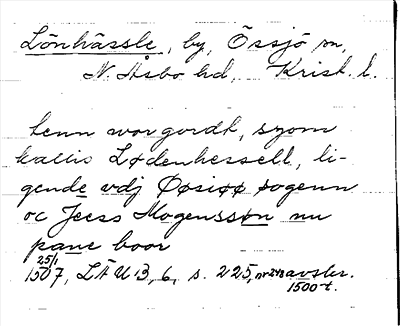 Lönhässle, by, Össjö sn,
N. Åsbo hd, Krist. l.
tenn wor gordt, szom
kallis Lødenhessell, li-
gende vdj Øøsiøø sogenn
oc Jess Mogenssøn nu
pane boor
25/1
1507, LÄUB, 6, s. 225, nr 243 avskr.
1500-t.